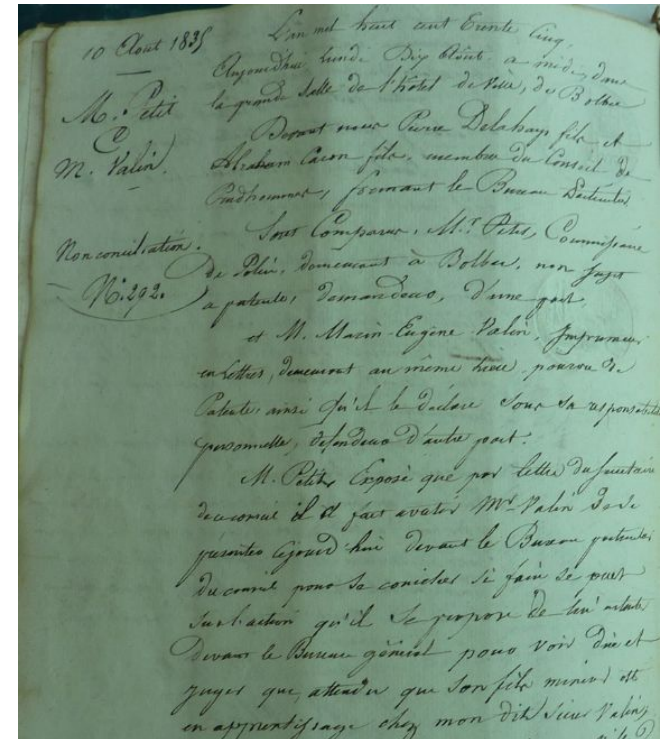 10 Aout 1835
M. Petit
C
M. Valin.
Non conciliation.
N°. 292.
L'an mil huit cent trente cinq,
Aujourd'hui lundi Dix Août à midi, dans
la grande Salle de l'hôtel de Ville, de Bolbec
Devant nous Pierre Delahaye fils et
Abraham Caron fils, membres du Conseil de
Prudhommes, formant le Bureau Particulier
Sont Comparus, M.r Petit, Commissaire
de Police, demeurant à Bolbec, non sujet
à patente, demandeur, d'une part,
et M. Marin Eugène Valin, Imprimeur
en lettres, demeurant au même lieu, pourvu de
Patente, ainsi qu'il le déclare sous sa responsabilité
personnelle, défendeur d'autre part.
M. Petit, Expose que par lettre du Secrétaire
du conseil il a fait inviter Mr Valin de se
présenter cejourd'hui devant le Bureau particulier
du conseil pour se concilier si faire se peut
sur l'action qu'il se propose de lui intenter
devant le Bureau général pour voir dire et
juger que, attendu que son fils mineur est
en apprentissage chez mon dit Sieur Valin,